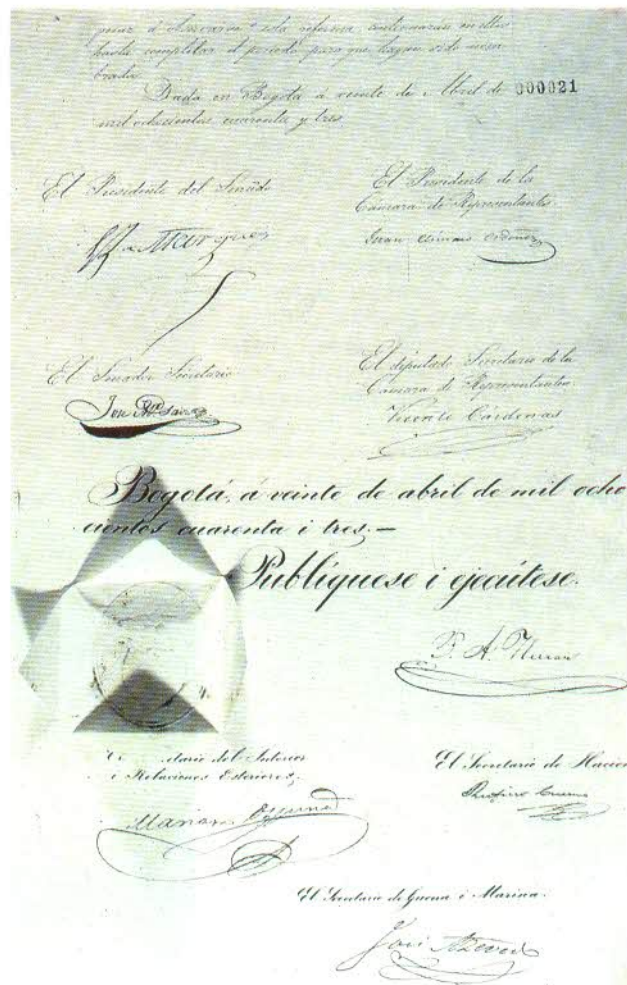 observarse esta reforma, continuarán en ellos
hasta completar el período para que hayan sido nom
brados.
Dada en Bogotá á veinte de Abril de 000021
mil ochocientos cuarenta y tres
El Presidente del Senado
El Presidente de la
Cámara de Representantes
Juan Clímaco Ordoñez
El Senador Secretario
El diputado Secretario de la
Cámara de Representantes
Vicente Cárdenas
Bogotá, á veinte de abril de mil ocho
cientos cuarenta i tres.—
Publíquese i ejecútese.
P. A. Herran
del Interior
i Relaciones Esteriores,
Mariano Ospina
El Secretario de Hacien
Rufino Cuervo
El Secretario de Guerra i Marina.
José Acevedo